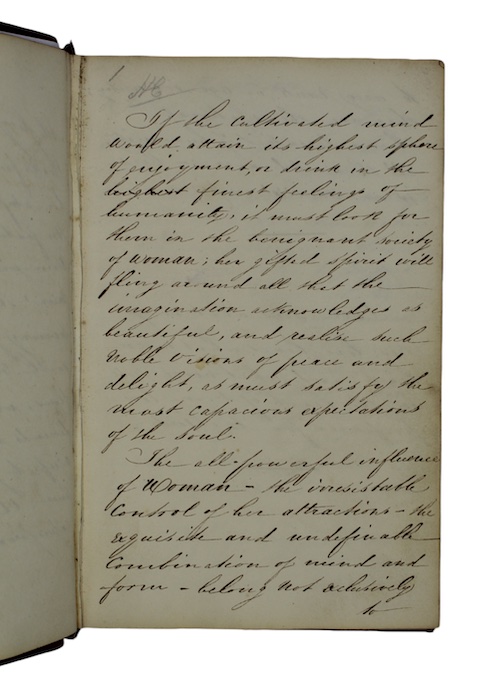 1
If the cultivated mind
would attain its highest sphere
of enjoyment, or drink in the
highest finest feelings of
humanity, it must look for
them in the benignant society
of woman; her gifted spirit will
fling around all that the
imagination acknowledges as
beautiful, and realise such
noble visions of peace and
delight, as must satisfy the
most capacious expectations
of the soul.
The all-powerful influence
of Woman - the irresistable
control of her attractions - the
exquisite and undefinable
combination of mind and
form - belong not exclusively
to